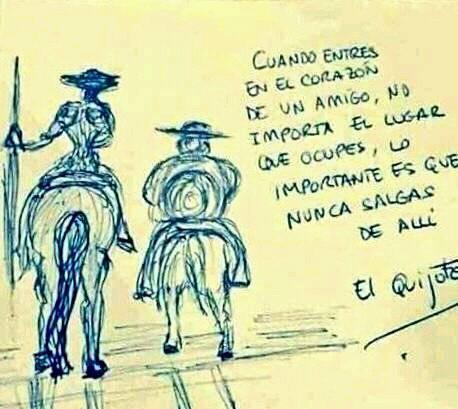 CUANDO ENTRES
EN EL CORAZÓN
DE UN AMIGO, NO
IMPORTA EL LUGAR
QUE OCUPES, LO
IMPORTANTE ES QUE
NUNCA SALGAS
DE ALLÍ
El Quijote